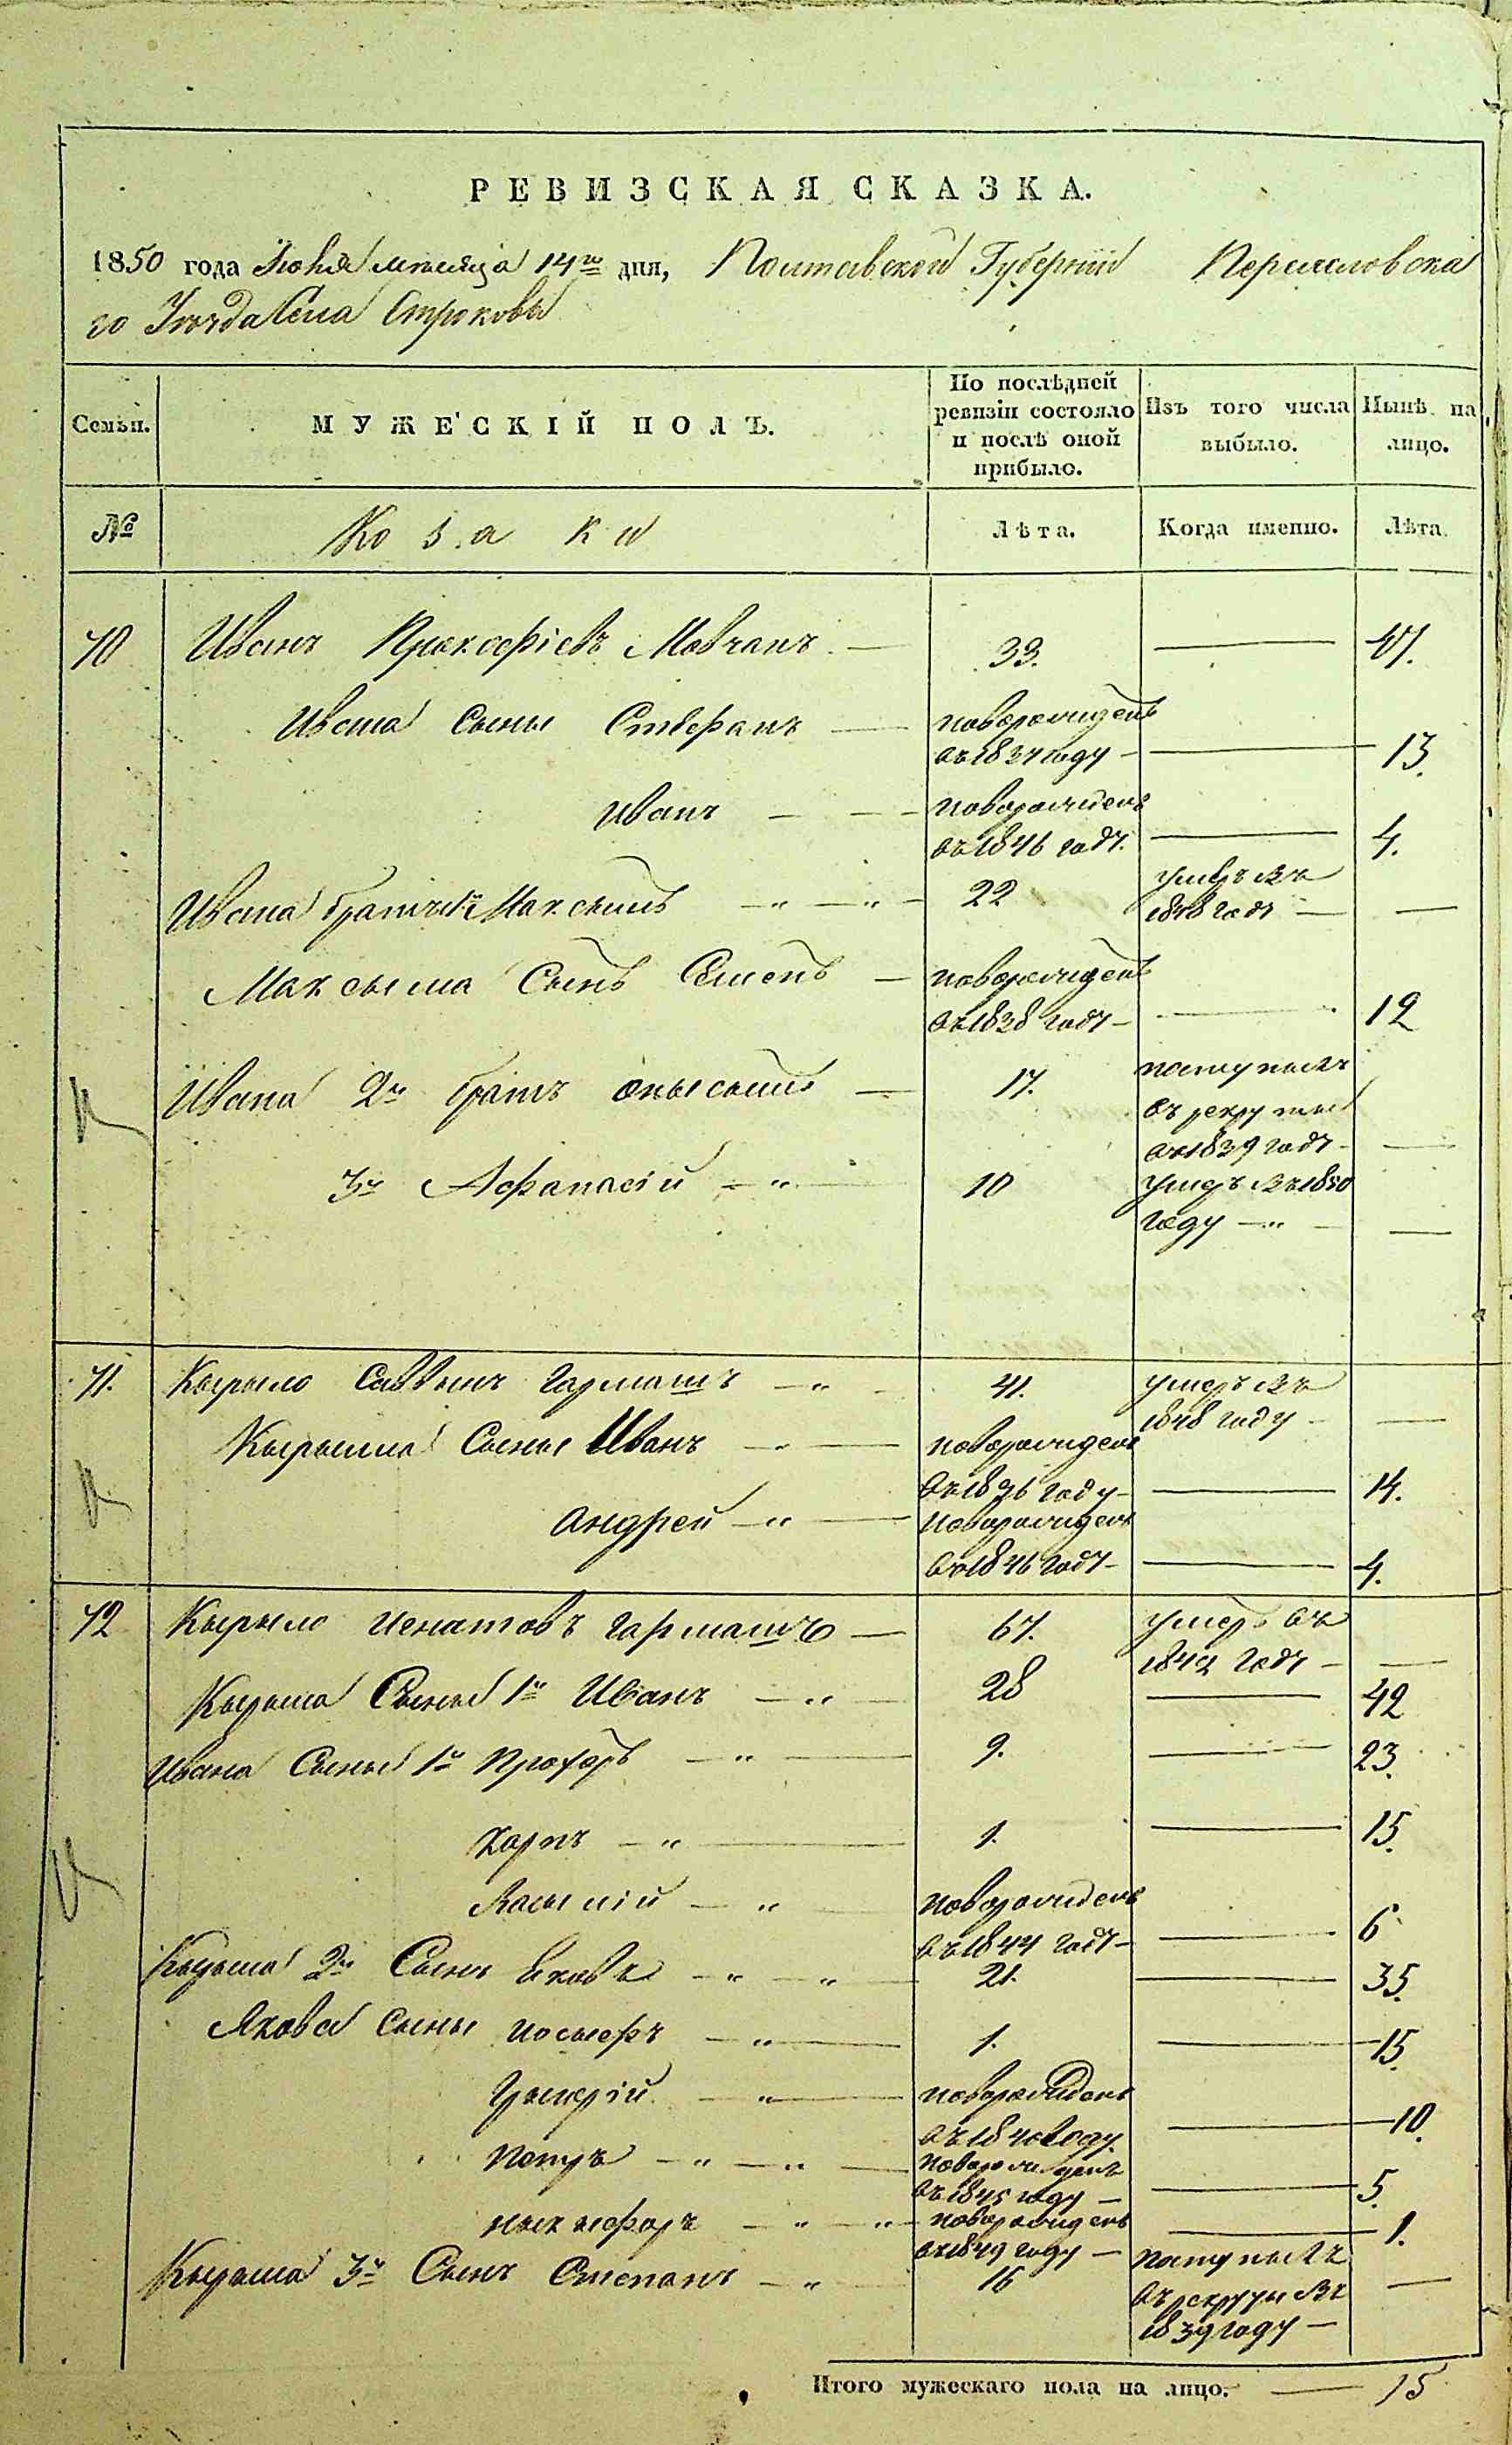 РЕВИЗСКАЯ СКАЗКА.
1850 года Июня месяца 14го дня, Полтавской Губернии Переясловска
го Уезда Села Строковы
Семьи.
МУЖЕСКІЙ ПОЛЪ.
По послѣдней
ревизіи состояло
и послѣ оной
прибыло.
Изъ того числа
выбыло.
Нынѣ на
лицо.
№
Козаки
Лѣта.
Когда именно.
Лѣта.
70 Иванъ Прокофіевъ Мовчанъ 33. — 47.
Ивана Сыны Стефанъ — новорожденъ
въ 1837 году — 13.
Иванъ — новорожденъ
въ 1846 году. — 4.
Ивана братъ Максымъ — 22 умеръ въ
1848 году — —
Максыма Сынъ Семенъ — новорожденъ
въ 1838 году — 12
Ивана 2й братъ Онысымъ — 17. поступилъ
въ рекруты
въ 1839 году — —
3й Афанасій — 10 умеръ въ 1850
году — —
71. Кырыло Саввынъ Гармашъ — 41. умеръ въ
1848 году — —
Кырылла Сыны Иванъ — новорожденъ
въ 1836 году — 14.
Андрей — новорожденъ
въ 1846 году — 4.
72 Кырыло Игнатовъ Гармашъ — 67. умеръ въ
1842 году — —
Кырыла Сыны 1й Иванъ — 28 — 42
Ивана Сыны 1й Прохоръ — 9. — 23.
Карпъ — 1. — 15.
Васылій — новорожденъ
въ 1844 году — 6
Кырыла 2й Сынъ Яковъ — 21. — 35.
Якова Сыны Иосыфъ — 1. — 15.
Грыгорій — новорожденъ
въ 1840 году. — 10.
Петръ — новорожденъ
въ 1845 году — 5.
Ныкыфоръ — новорожденъ
въ 1849 году — 1.
Кырыла 3й Сынъ Степанъ — 16 поступилъ
въ рекруты въ
1839 году — —
Итого мужескаго пола на лицо. — 15